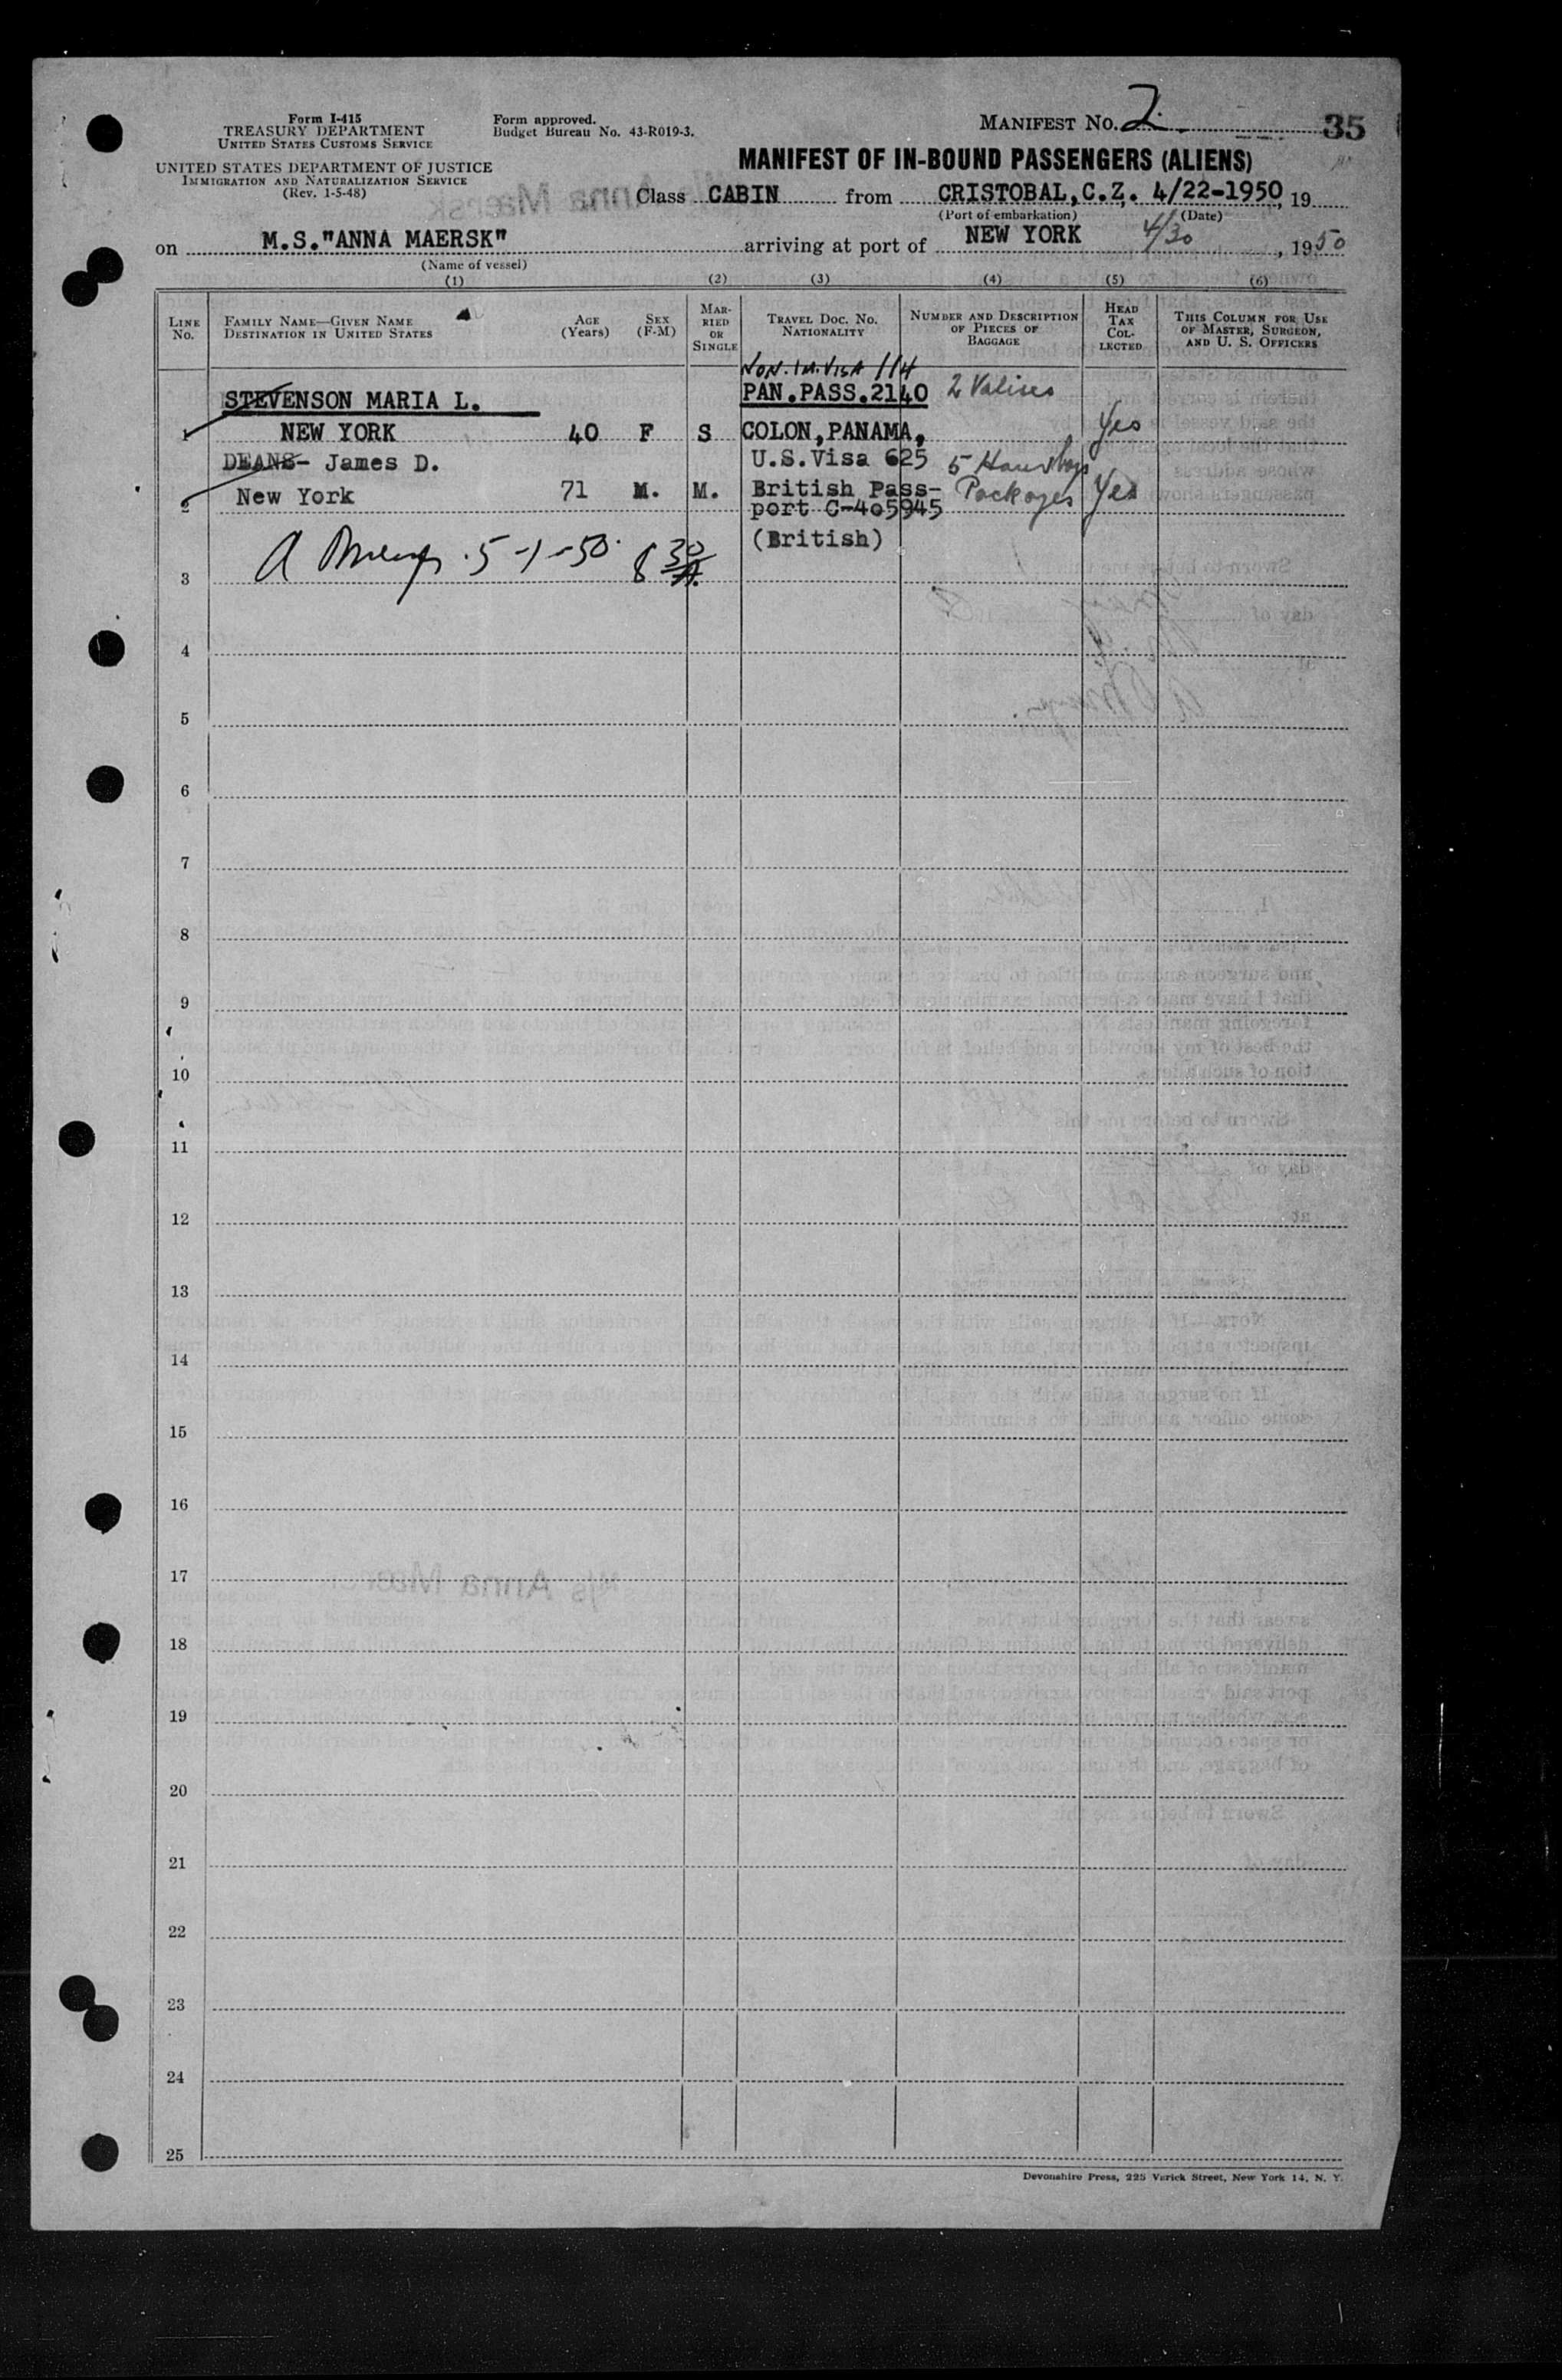 Form I-415
TREASURY DEPARTMENT
UNITED STATES CUSTOMS SERVICE
UNITED STATES DEPARTMENT OF JUSTICE
IMMIGRATION AND NATURALIZATION SERVICE
(Rev. 1-5-48)
Form approved.
Budget Bureau No. 43-R019-3.
MANIFEST NO. 2. 35
MANIFEST OF IN-BOUND PASSENGERS (ALIENS)
Class CABIN from CRISTOBAL, C.Z. 4/22-1950, 19
(Port of embarkation) (Date)
on M.S."ANNA MAERSK" arriving at port of NEW YORK 4/30, 1950
(Name of vessel)
(1) (2) (3) (4) (5) (6)
LINE No.
FAMILY NAME—GIVEN NAME
DESTINATION IN UNITED STATES
AGE (Years)
SEX (F-M)
MARRIED OR SINGLE
TRAVEL DOC. NO.
NATIONALITY
NUMBER AND DESCRIPTION OF PIECES OF BAGGAGE
HEAD TAX COLLECTED
THIS COLUMN FOR USE OF MASTER, SURGEON, AND U. S. OFFICERS
NON. IM. VISA 114
STEVENSON MARIA L. PAN.PASS.2140 2 Valises
1 NEW YORK 40 F S COLON,PANAMA, Yes
DEANS- James D. U.S.Visa 625 5 Handbags
2 New York 71 M. M. British Pass- Packages Yes
port C-405945
(British)
5-1-50 8 30 A.
3
4
5
6
7
8
9
10
11
12
13
14
15
16
17
18
19
20
21
22
23
24
25
Devonshire Press, 225 Varick Street, New York 14, N. Y.